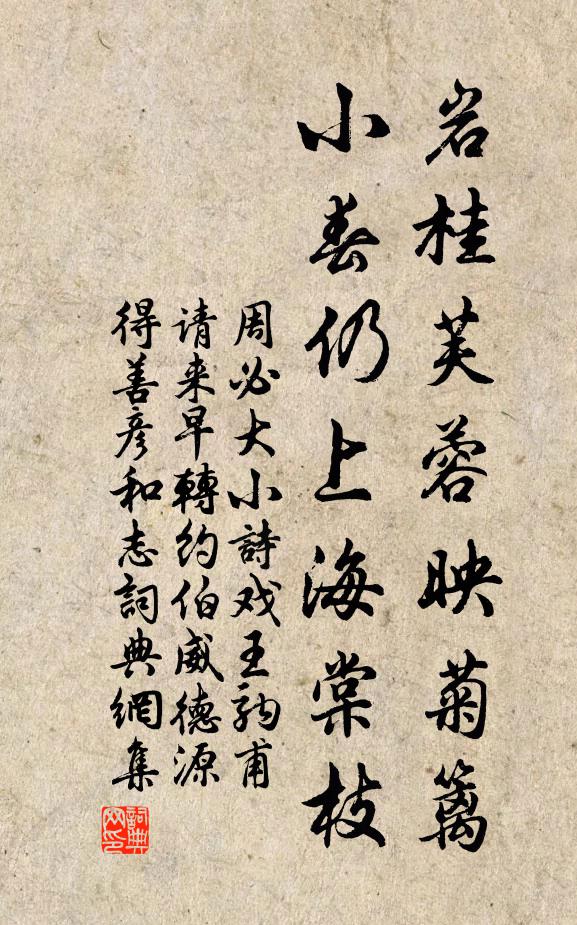 岩桂芙蓉映菊篱
小春仍上海棠枝
周必大小詩戏王駒甫
请来早轉约伯威德源
得善彦和志詞典網集
詞典网印